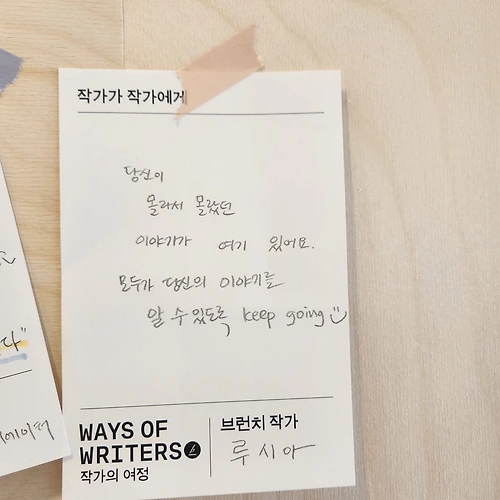 작가가 작가에게
당신이
몰라서 몰랐던
이야기가 여기 있어요.
모두가 당신의 이야기를
알 수 있도록 keep going
WAYS OF
WRITERS
작가의 여정
브런치 작가
루시아
다"
에이터